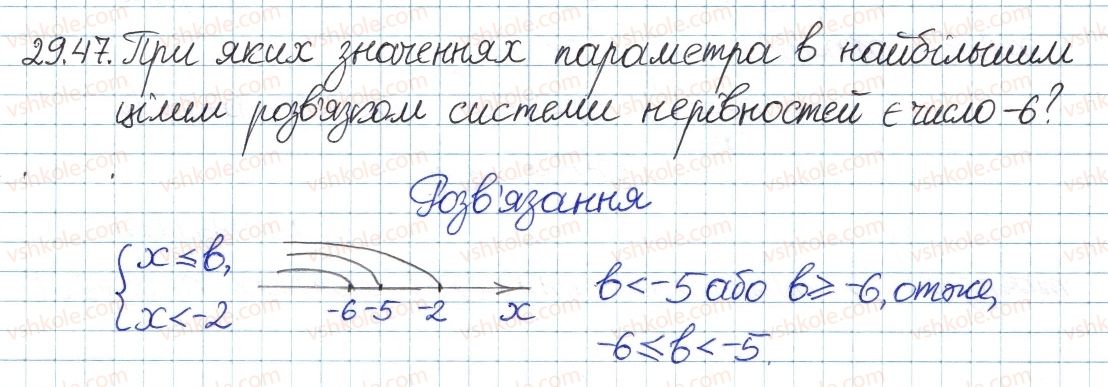 29.47. При яких значеннях параметра b найбільшим
цілим розв'язком системи нерівностей є число -6?
Розв'язання
{ x ≤ b,
x < -2
-6 -5 -2 x
b < -5 або b ≥ -6, отже,
-6 ≤ b < -5.